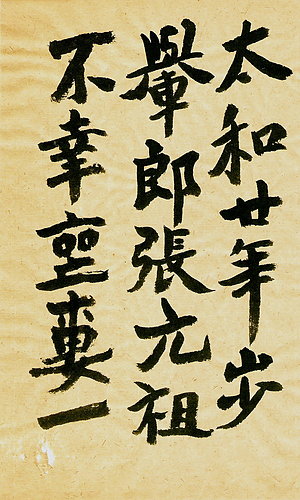 太和廿年步
轝郎張元祖
不幸喪妻一